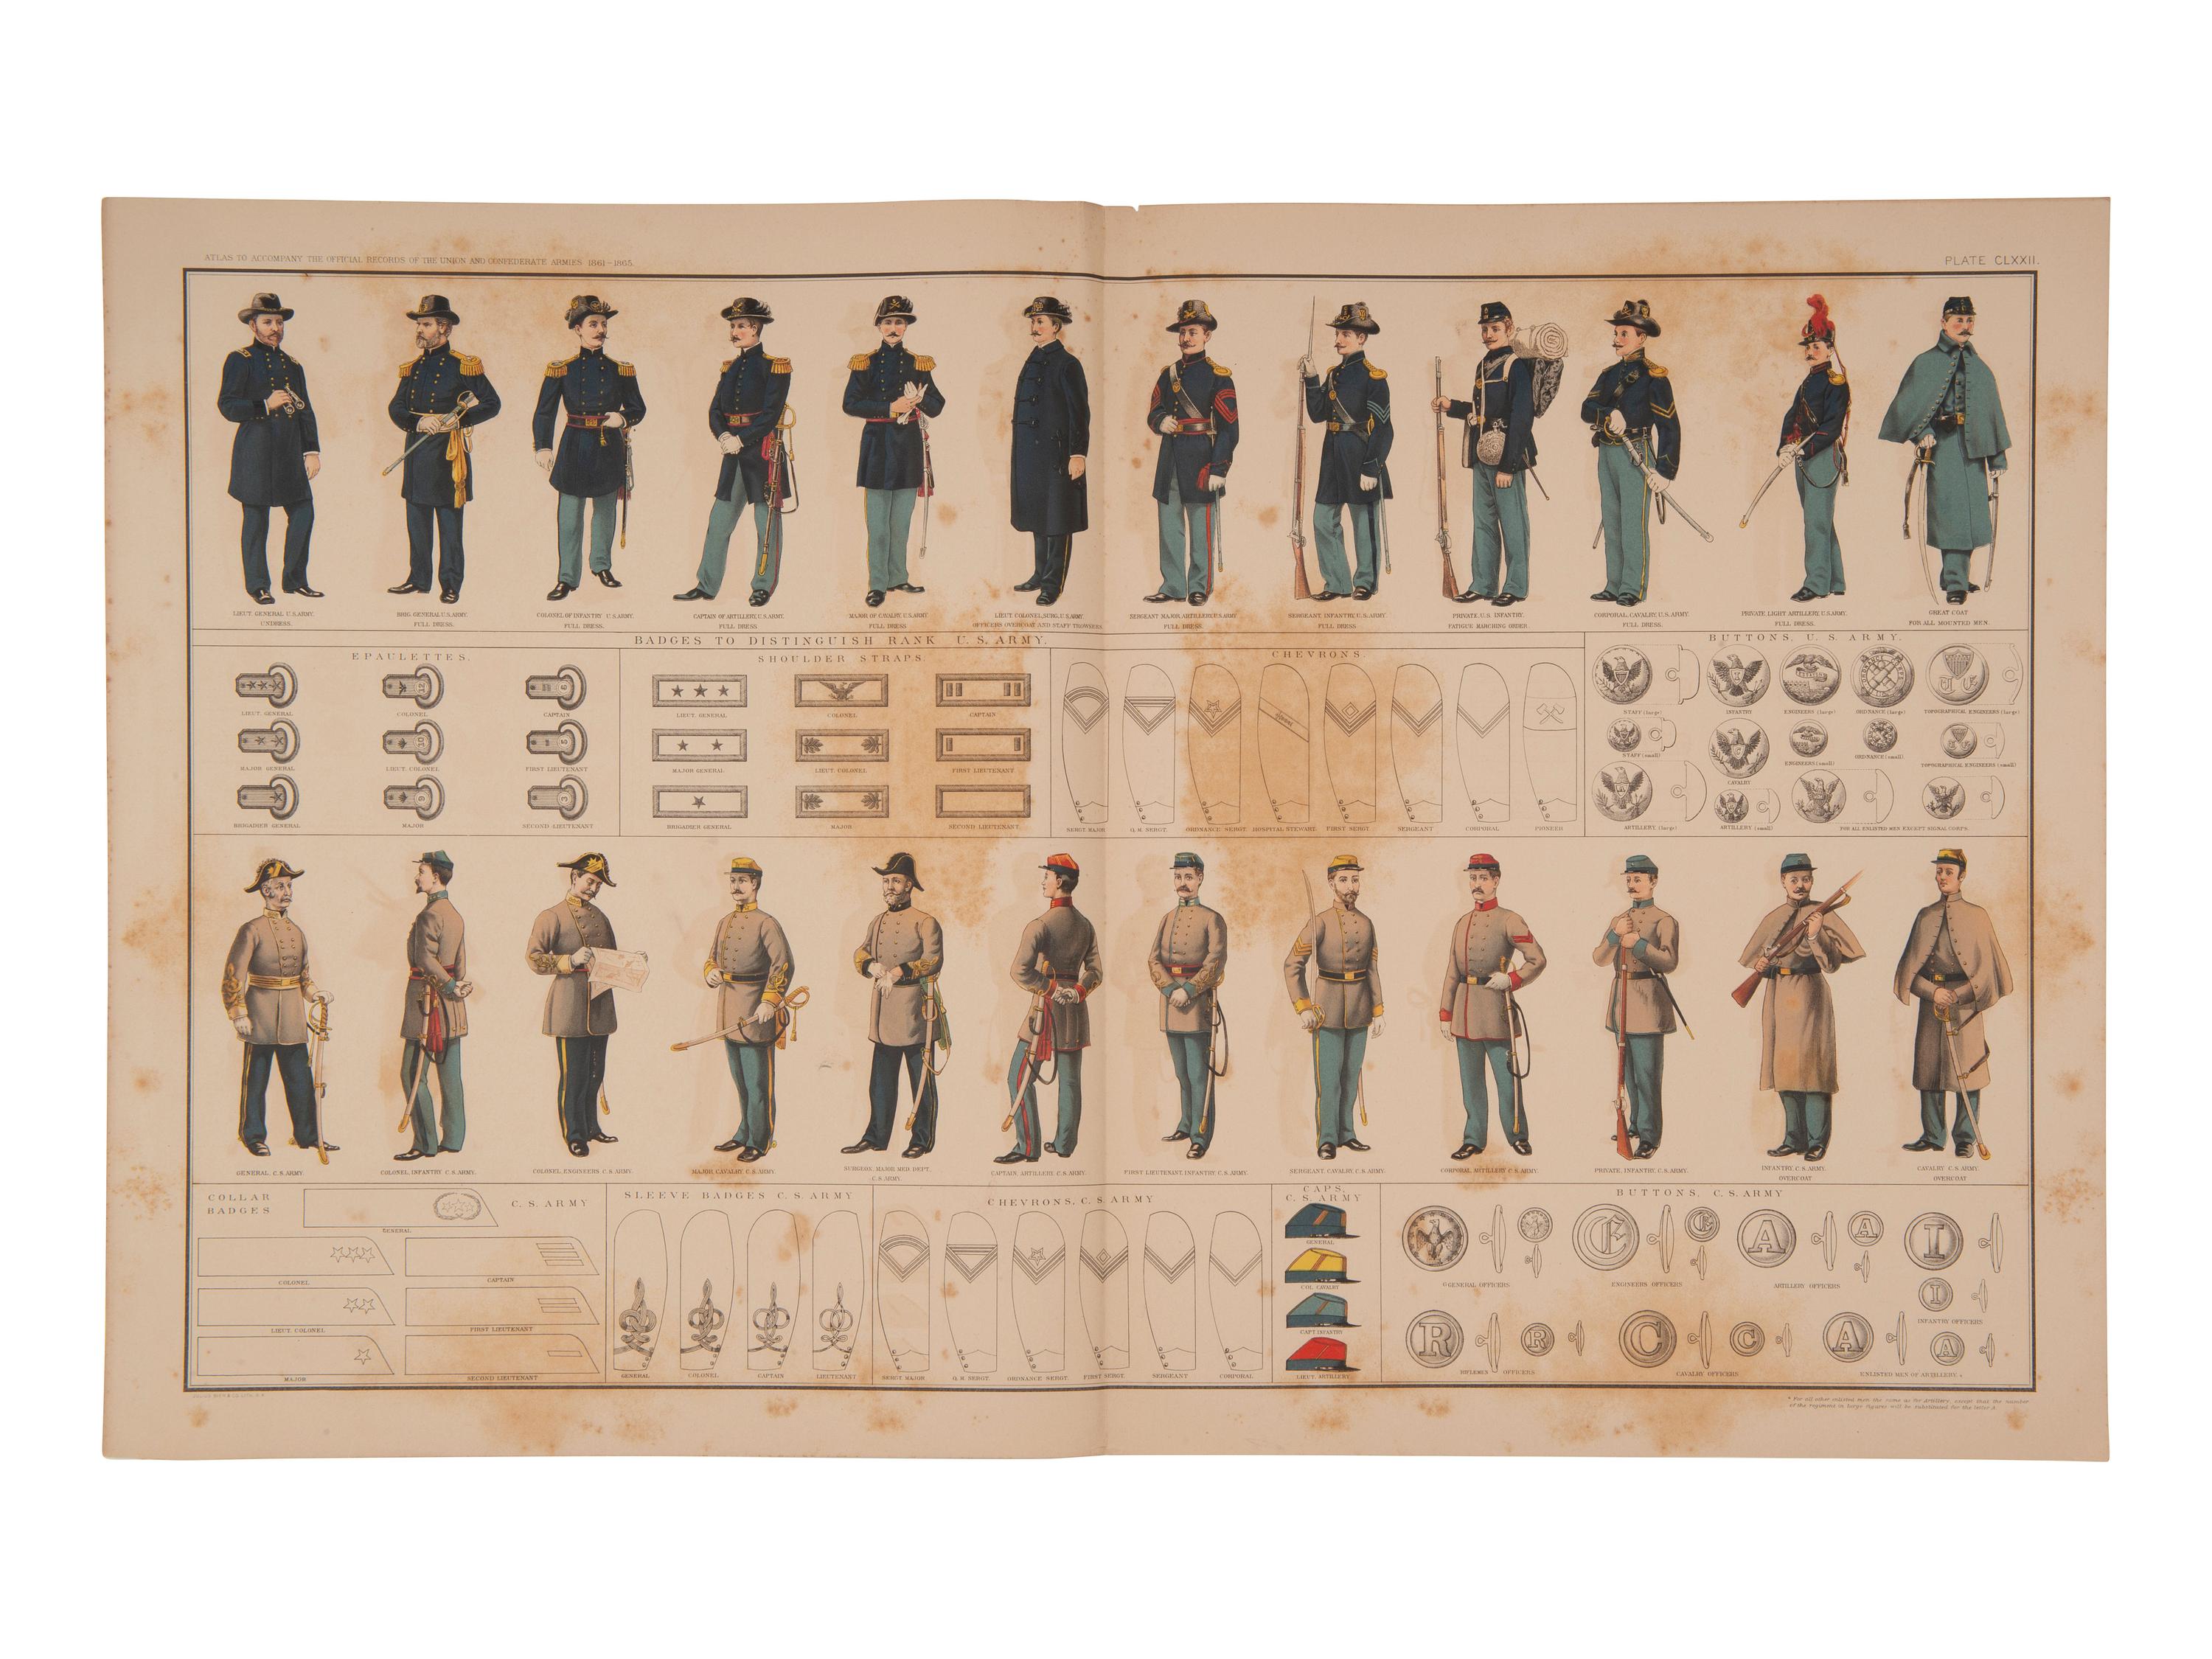 ATLAS TO ACCOMPANY THE OFFICIAL RECORDS OF THE UNION AND CONFEDERATE ARMIES 1861-1865.
PLATE CLXXII.
LIEUT GENERAL U.S. ARMY.
UNDRESS.
BRIG. GENERAL U.S. ARMY.
FULL DRESS.
COLONEL OF INFANTRY U.S. ARMY.
FULL DRESS.
CAPTAIN OF ARTILLERY, U.S. ARMY.
FULL DRESS
MAJOR OF CAVALRY U.S. ARMY.
FULL DRESS
LIEUT COLONEL, SURG. U.S. ARMY
OFFICERS OVERCOAT AND STAFF TROWSERS
SERGEANT MAJOR ARTILLERY, U.S. ARMY
FULL DRESS.
SERGEANT, INFANTRY, U.S. ARMY.
FULL DRESS
PRIVATE, U.S. INFANTRY.
FATIGUE MARCHING ORDER.
CORPORAL, CAVALRY, U.S. ARMY.
FULL DRESS.
PRIVATE LIGHT ARTILLERY, U.S. ARMY.
FULL DRESS.
GREAT COAT
FOR ALL MOUNTED MEN.
BADGES TO DISTINGUISH RANK U. S. ARMY.
EPAULETTES.
LIEUT. GENERAL
COLONEL
CAPTAIN
MAJOR GENERAL
LIEUT. COLONEL
FIRST LIEUTENANT
BRIGADIER GENERAL
MAJOR
SECOND LIEUTENANT
SHOULDER STRAPS.
LIEUT. GENERAL
COLONEL
CAPTAIN
MAJOR GENERAL
LIEUT. COLONEL
FIRST LIEUTENANT
BRIGADIER GENERAL
MAJOR
SECOND LIEUTENANT
CHEVRONS.
SERGT. MAJOR
Q. M. SERGT.
ORDNANCE SERGT.
HOSPITAL STEWARD
FIRST SERGT
SERGEANT
CORPORAL
PIONEER
BUTTONS, U. S. ARMY.
STAFF (large)
INFANTRY
ENGINEERS (large)
ORDNANCE (large)
TOPOGRAPHICAL ENGINEERS (large)
STAFF (small)
CAVALRY
ENGINEERS (small)
ORDNANCE (small)
TOPOGRAPHICAL ENGINEERS (small)
ARTILLERY. (large)
ARTILLERY (small)
FOR ALL ENLISTED MEN EXCEPT SIGNAL CORPS.
GENERAL, C. S. ARMY
COLONEL, INFANTRY C.S. ARMY.
COLONEL ENGINEERS C.S. ARMY.
MAJOR, CAVALRY C.S. ARMY.
SURGEON, MAJOR MED. DEPT.,
C.S. ARMY
CAPTAIN, ARTILLERY C.S. ARMY
FIRST LIEUTENANT, INFANTRY C.S. ARMY.
SERGEANT, CAVALRY, C.S. ARMY.
CORPORAL, ARTILLERY C.S. ARMY
PRIVATE, INFANTRY, C.S. ARMY.
INFANTRY, C.S. ARMY.
OVERCOAT
CAVALRY C.S. ARMY
OVERCOAT
COLLAR
BADGES
C. S. ARMY
GENERAL
COLONEL
CAPTAIN
LIEUT. COLONEL
FIRST LIEUTENANT
MAJOR
SECOND LIEUTENANT
SLEEVE BADGES C. S. ARMY
GENERAL
COLONEL
CAPTAIN
LIEUTENANT
CHEVRONS, C. S. ARMY
SERGT. MAJOR
Q. M. SERGT.
ORDNANCE SERGT.
FIRST SERGT
SERGEANT
CORPORAL
CAPS,
C. S. ARMY
GENERAL
COL. CAVALRY
CAPT. INFANTRY
LIEUT ARTILLERY
BUTTONS, C. S. ARMY
E
E
A
A
I
GENERAL OFFICERS
ENGINEERS OFFICERS
ARTILLERY OFFICERS
I
INFANTRY OFFICERS
R
R
C
C
A
A
RIFLEMEN OFFICERS
CAVALRY OFFICERS
ENLISTED MEN OF ARTILLERY.
* For all other enlisted men the same as for Artillery, except that the number
of the regiment in large figures will be substituted for the letter A.